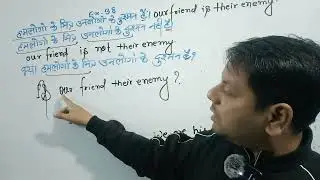 Ex-98
हमलोगों के मित्र उनलोगों के दुश्मन है। Our friend is their enemy
हमलोगों के मित्र उनलोगों के दुश्मन नहीं है।
our friend is not their enemy
क्या हमलोगों के मित्र उनलोगों के दुश्मन है?
our friend their enemy?